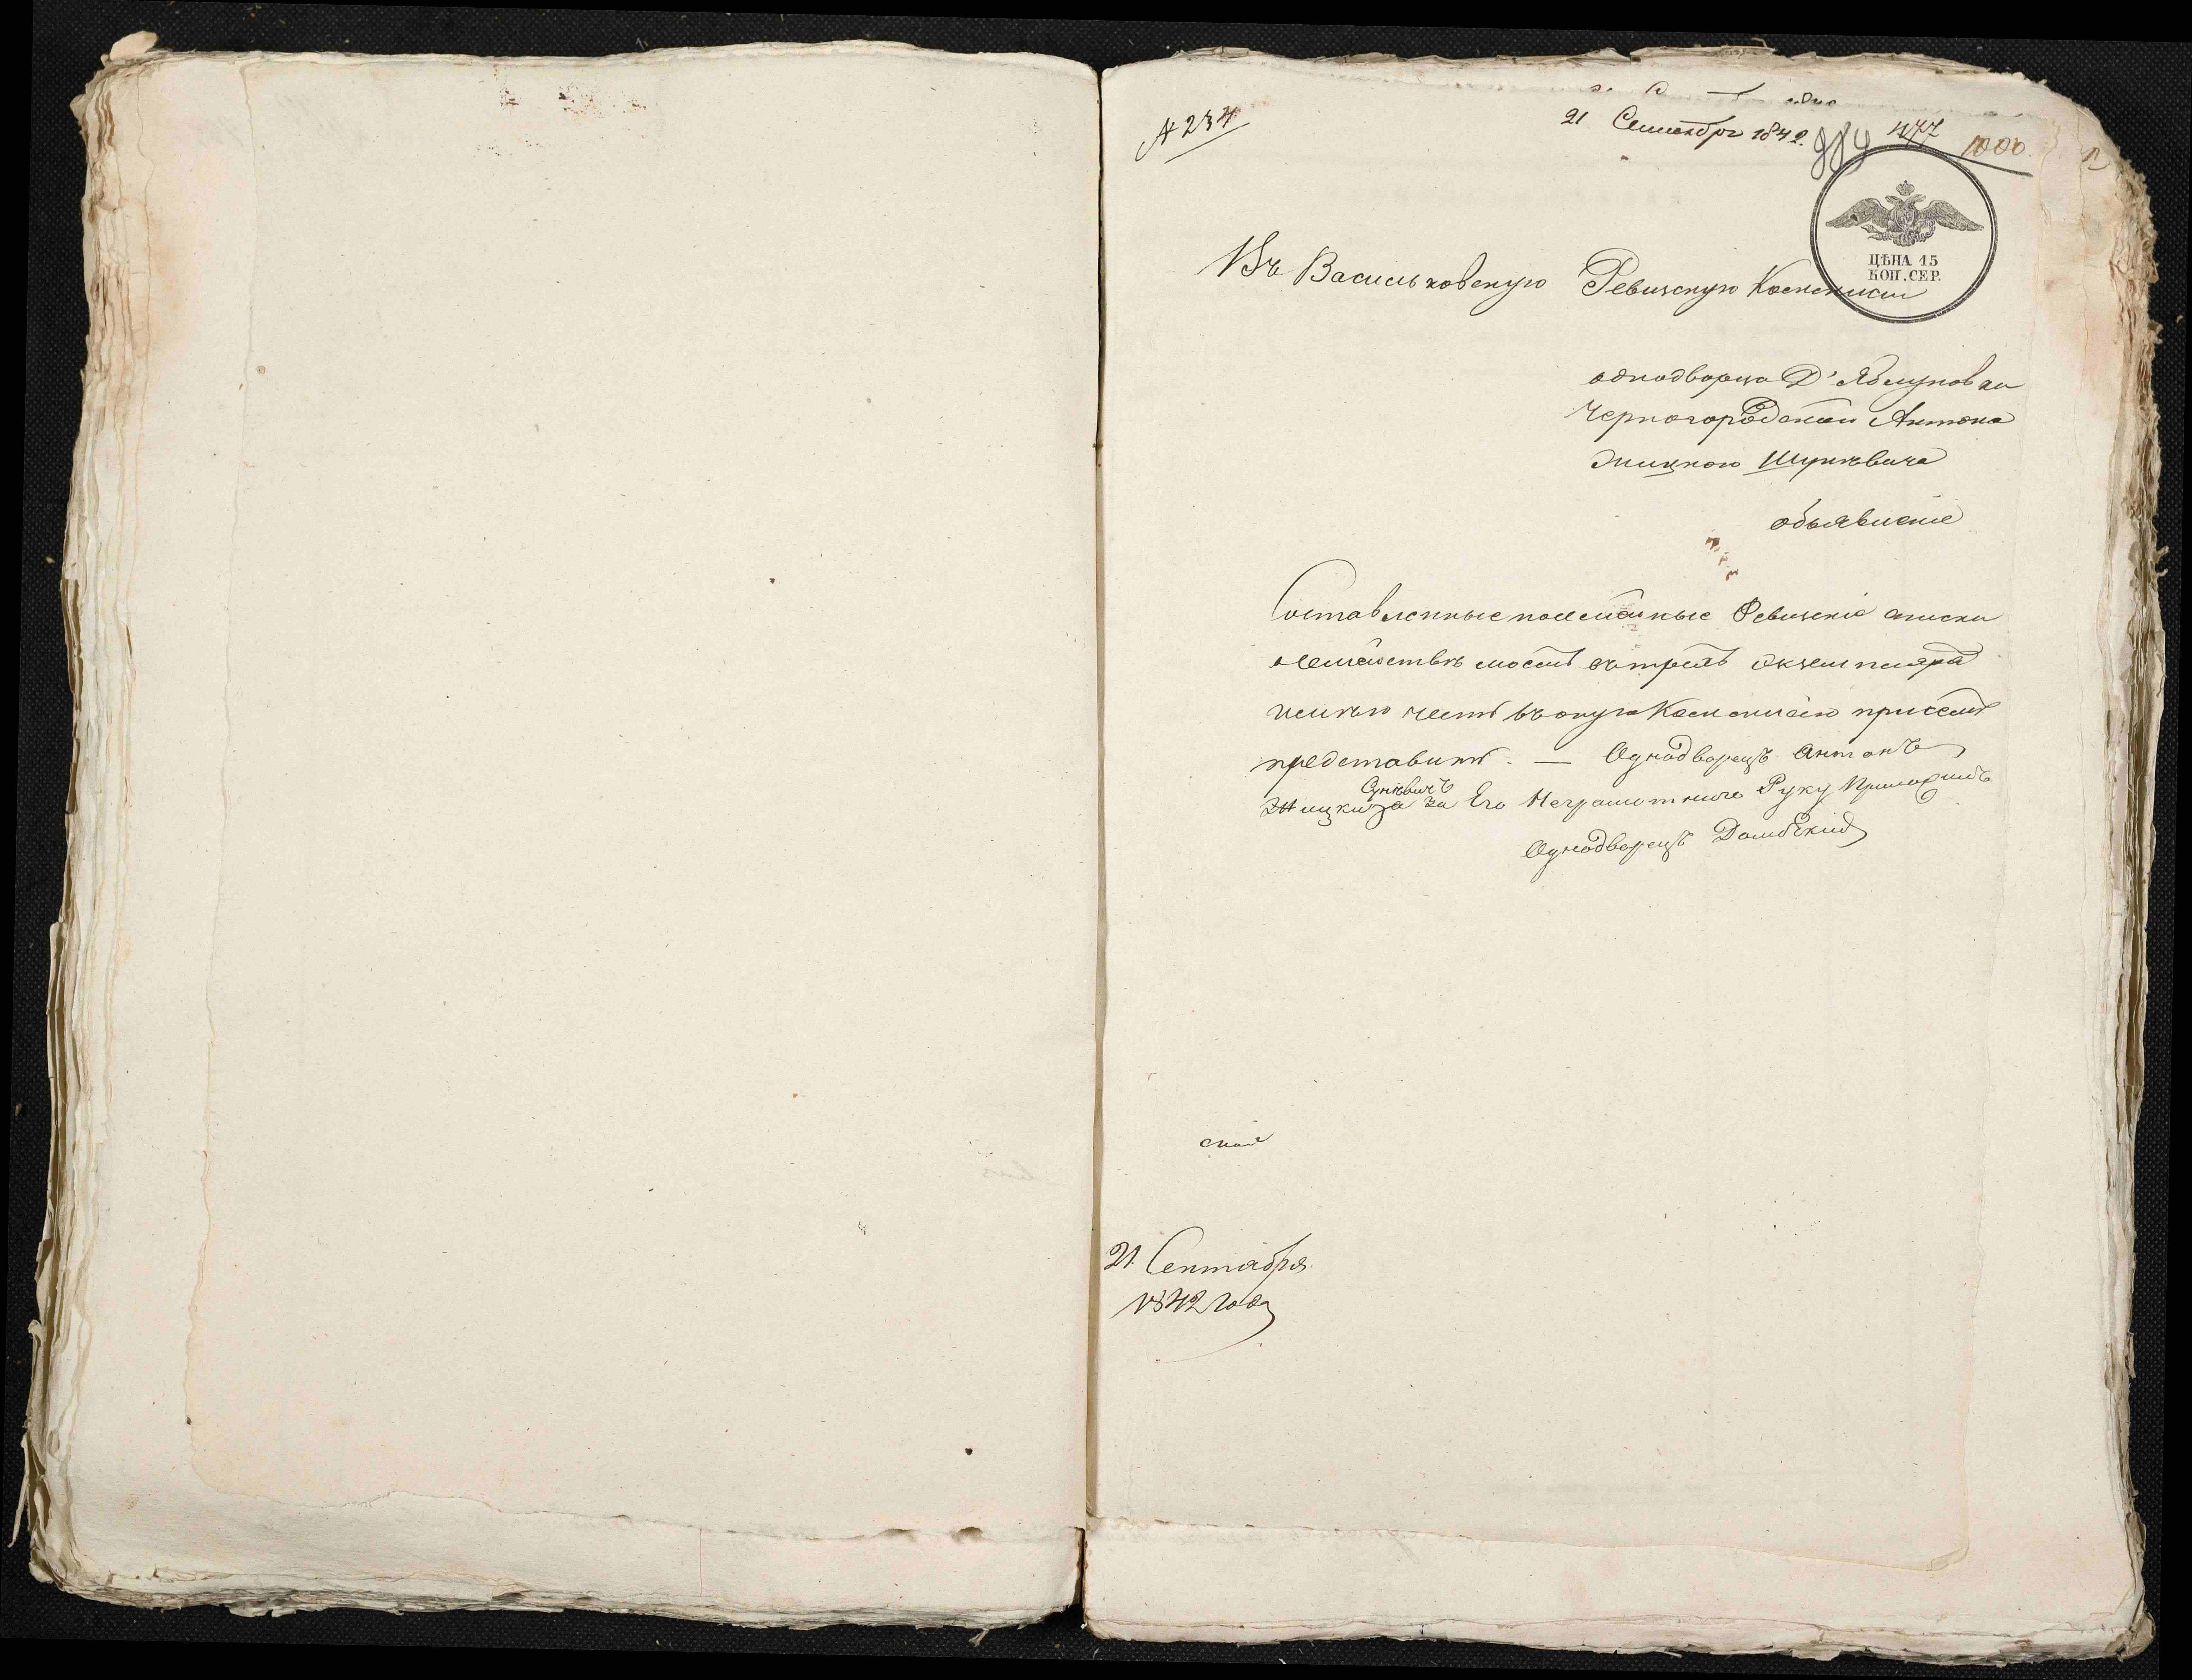 № 234
21 Сентября 1842.
984 477 1000
ЦѢНА 15
КОП. СЕР.
Въ Васильковскую Ревизскую Коммисiи
однодворца Д. Яблуновки
Черногородской Антона
Жицкого Шункѣвича
объявленiе
Составленные посемейные Ревизскiе списки
о семействѣ моемъ въ трехъ экземплярахъ
имѣю честь въ оную Коммисiю при семъ
представить. — Однодворецъ Антонъ
Сункѣвичъ
Жицки за Его Неграмотного Руку Приложилъ
Однодворецъ Домбскiй
21 Сентября
1842 года